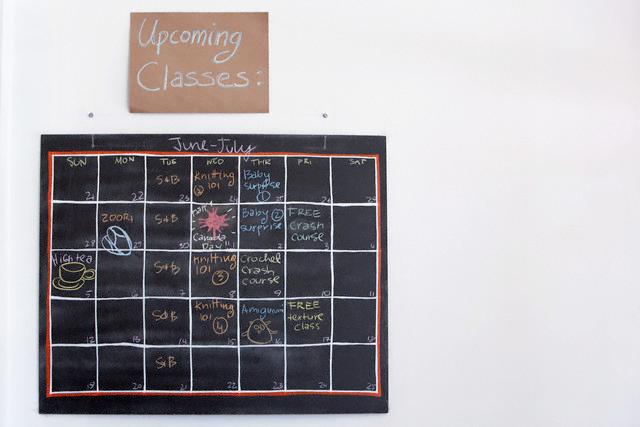 Upcoming
Classes:
June-July
SUN MON TUE WED THR FRI SAT
21 22 23 24 25 26 27
S&B
Knitting
101
2
Baby
surprise
1
28 29 30 1 2 3 4
ZOORI
S&B
Canada
Day!!
Baby 2
surprise
FREE
crash
course
5 6 7 8 9 10 11
High tea
S&B
Knitting
101
3
Crochet
crash
course
12 13 14 15 16 17 18
S&B
Knitting
101
4
Amigurumi
FREE
texture
class
19 20 21 22 23 24 25
S&B